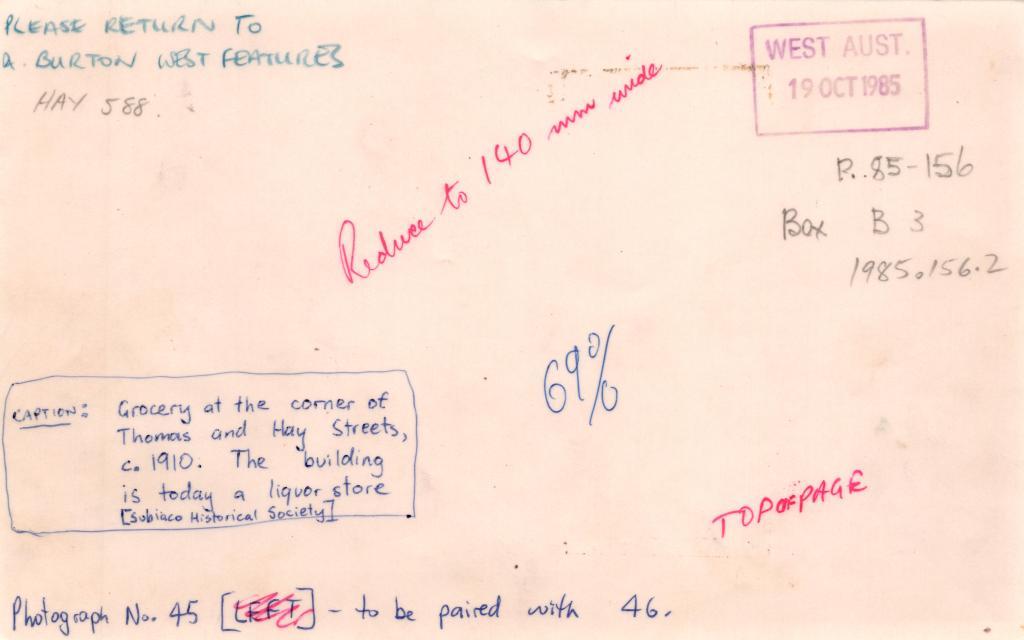 PLEASE RETURN TO
A. BURTON WEST FEATURES
HAY 588.
WEST AUST.
19 OCT 1985
Reduce to 140 mm wide
P. 85-156
Box B 3
1985.156.2
69%
CAPTION: Grocery at the corner of
Thomas and Hay Streets,
c. 1910. The building
is today a liquor store
[Subiaco Historical Society]
TOP OF PAGE
Photograph No. 45 [LEFT] - to be paired with 46.